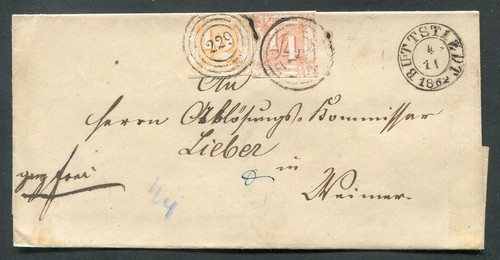 229
1/4
BUTTSTÆDT
4
11
1862
An
Herrn Ablösungs-Kommissar
Lieber
in
Weimar.
ganz frei